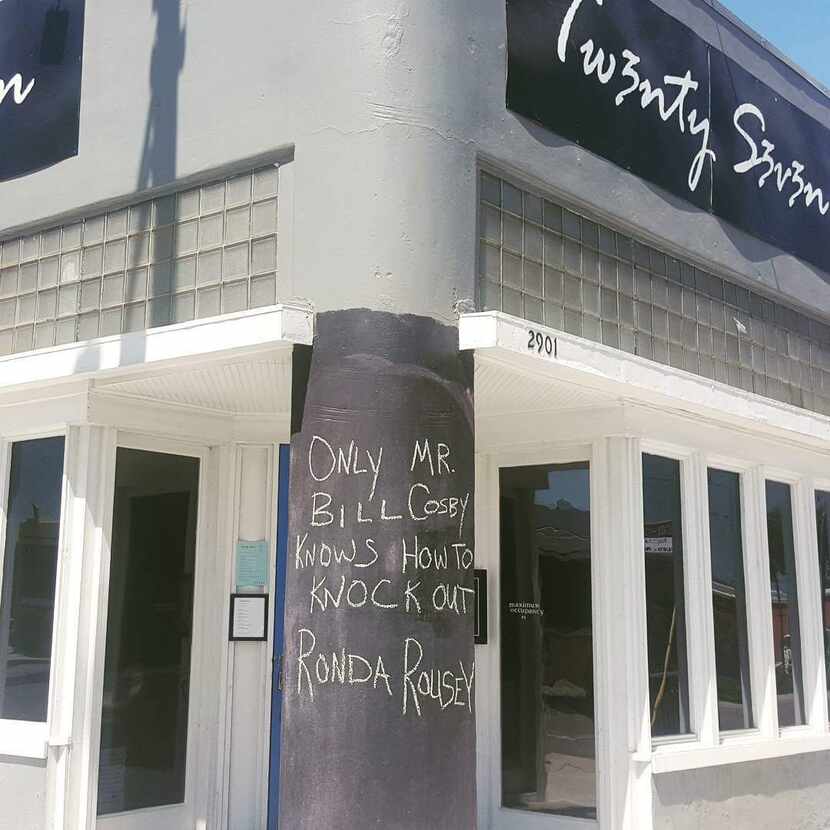 Tw3nty S3v3n
n
2901
ONLY MR.
BILL COSBY
KNOWS HOW TO
KNOCK OUT
RONDA ROUSEY
maximum
occupancy